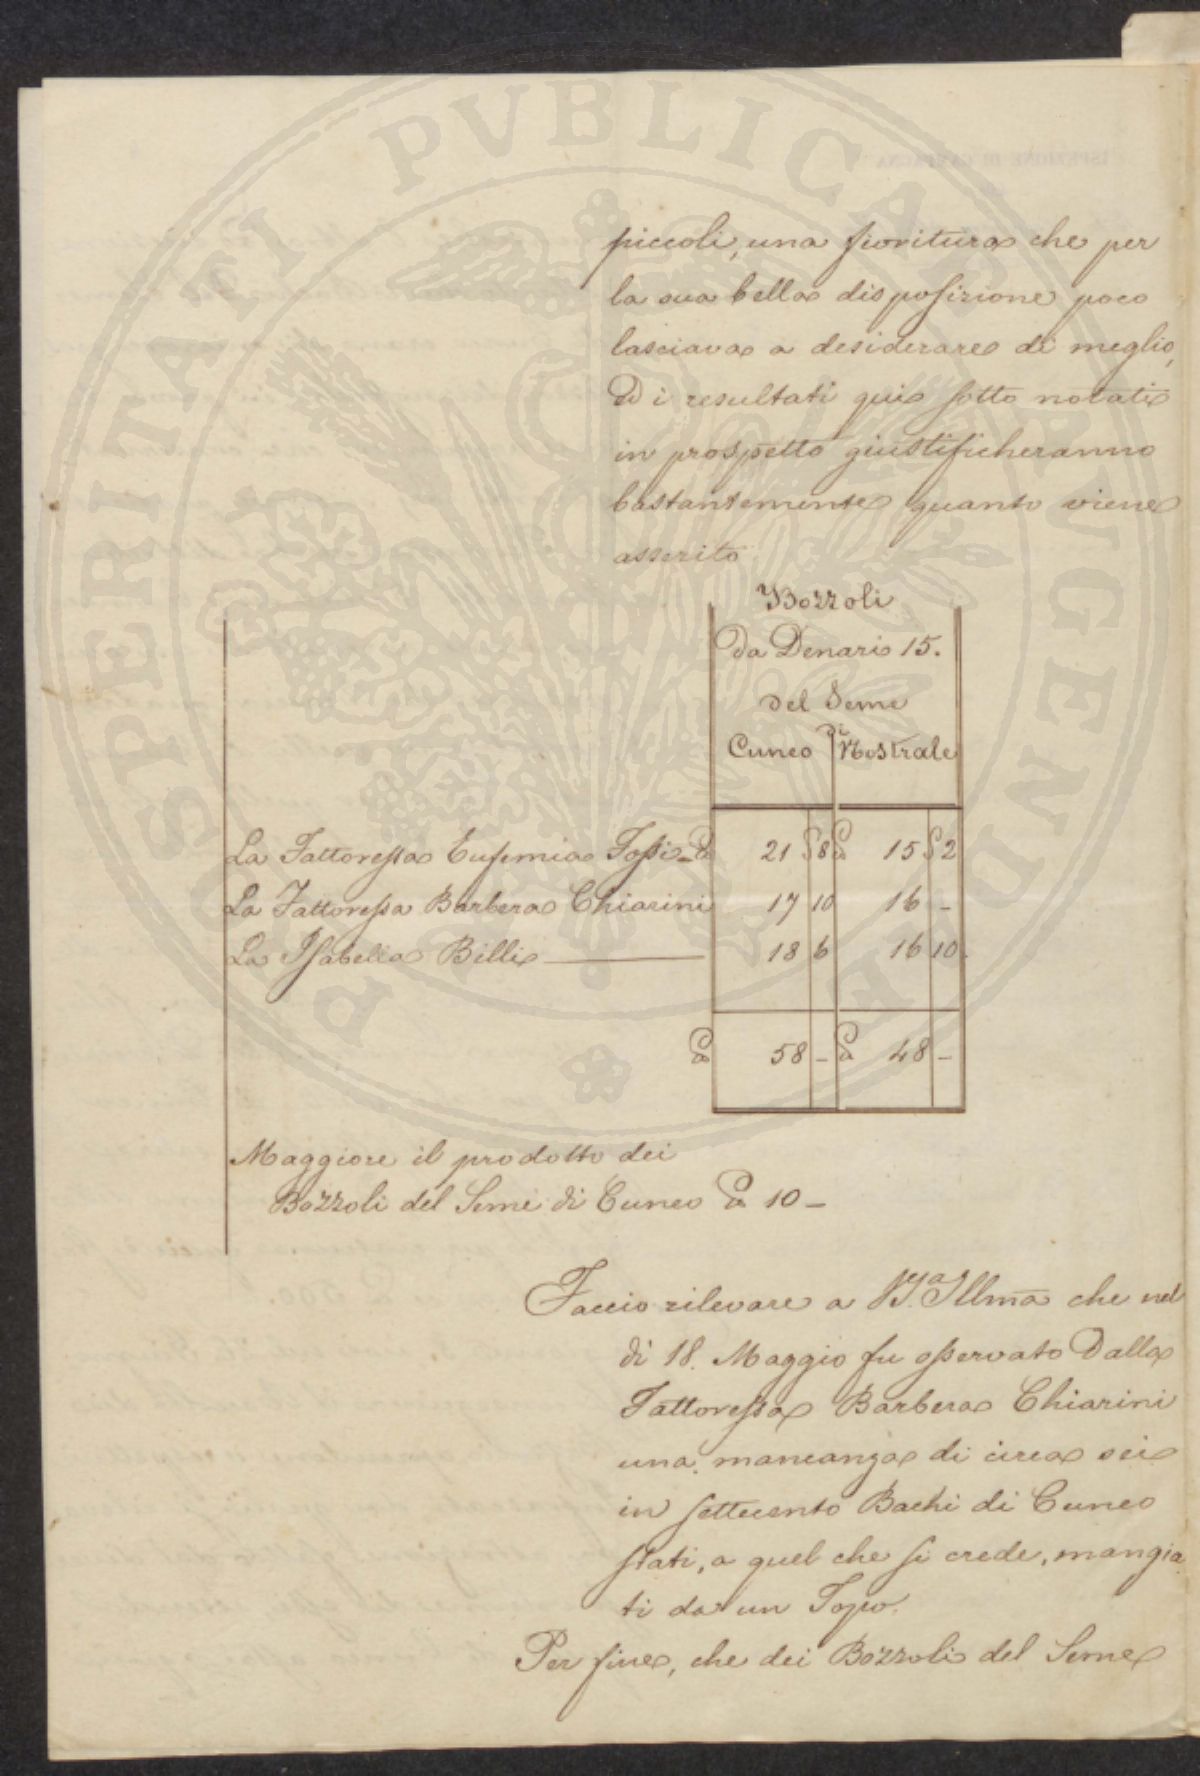 PROSPERITATI PVBLICAE AVGENDAE
ISPEZIONE DI CAMPAGNA
piccoli, una fioritura che per
la sua bella disposizione poco
lasciava a desiderare di meglio,
Ed i resultati qui sotto notati
in prospetto giustificheranno
bastantemente quanto viene
asserito.
Bozzoli
da Denari 15.
del Seme
Cuneo di Nostrale
La Fattoressa Eufemia Fossi - 21 8 15 2
La Fattoressa Barbera Chiarini 17 10 16 -
La Isabella Billi 18 6 16 10.
58 - 48 -
Maggiore il prodotto dei
Bozzoli del Seme di Cuneo 10 -
Faccio rilevare a V.S.a Illma che nel
di 18. Maggio fu osservato dalla
Fattoressa Barbera Chiarini
una mancanza di circa sei
in settecento Bachi di Cuneo
stati, a quel che si crede, mangia
ti da un Topo.
Per fine, che dei Bozzoli del Seme